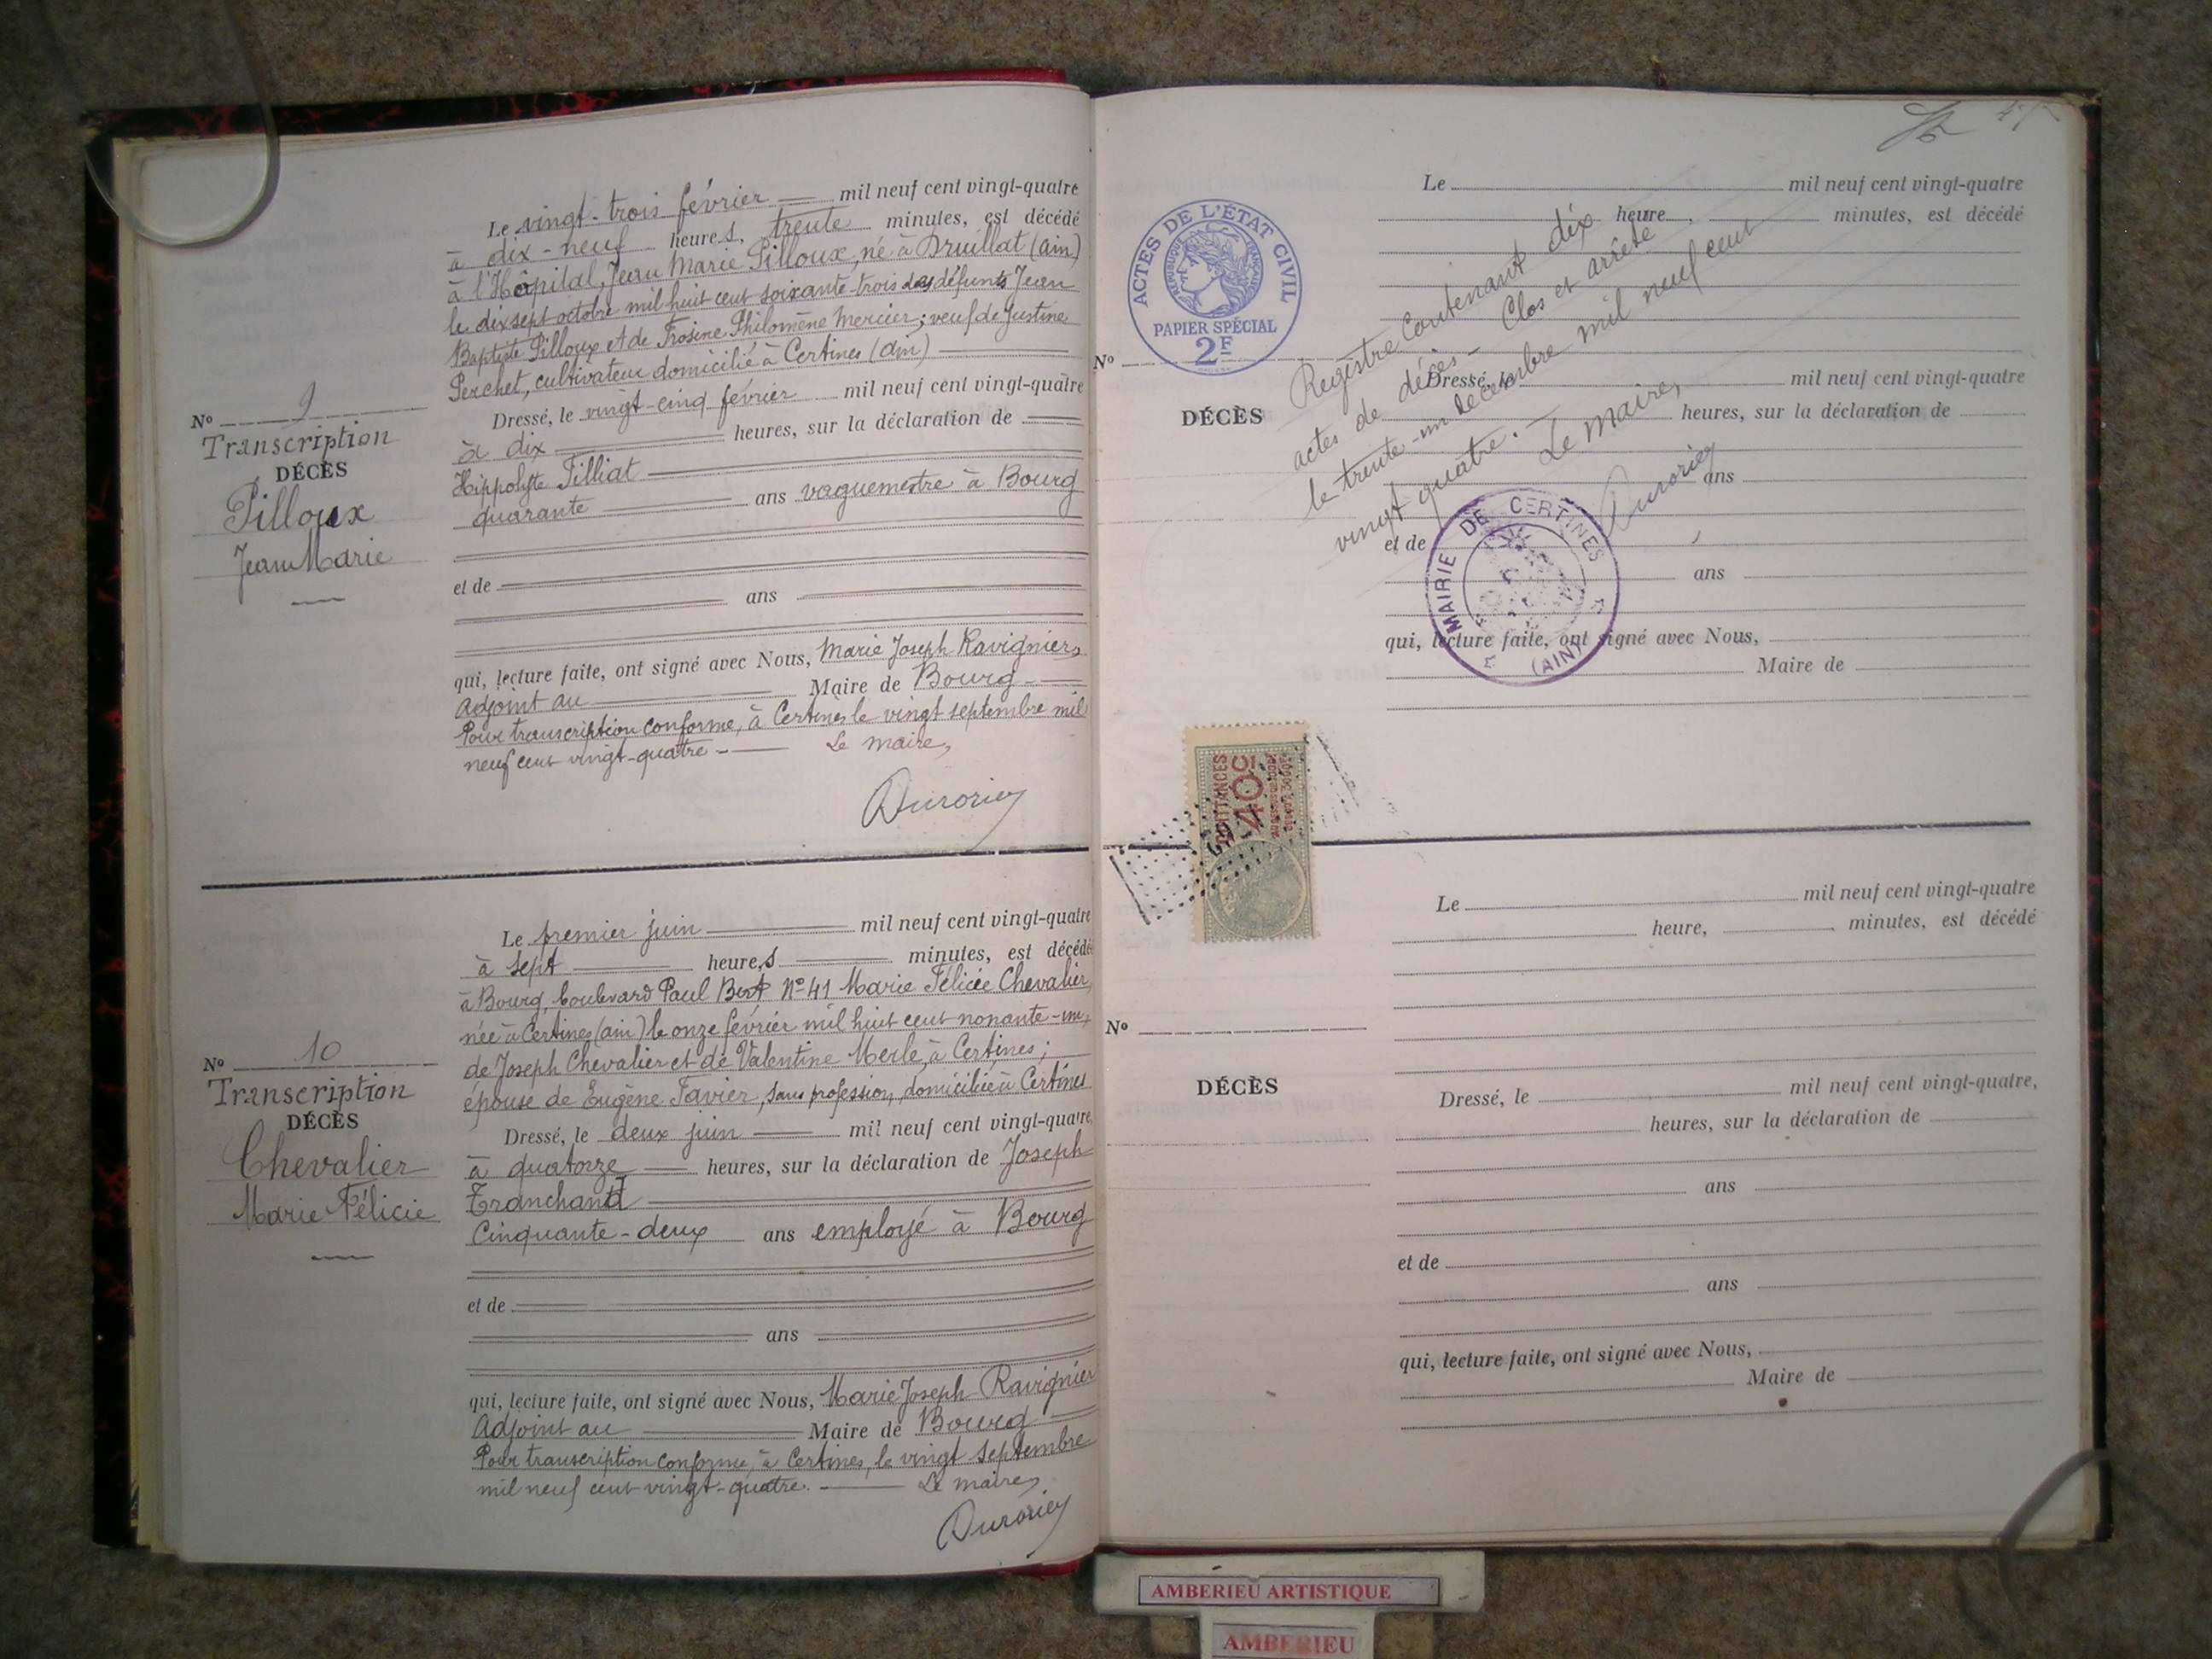 Le vingt-trois février mil neuf cent vingt-quatre
à dix-neuf heures, trente minutes, est décédé
à l'Hôpital, Jean Marie Pilloux, né à Druillat (ain)
le dix sept octobre mil huit cent soixante-trois des défunts Jean
Baptiste Pilloux et de Frosine Philomène Mercier; veuf de Justine
Perchet, cultivateur domicilié à Certines (ain)
Nº 9
Transcription
DÉCÈS
Pilloux
Jean Marie
Dressé, le vingt-cinq février mil neuf cent vingt-quatre
à dix heures, sur la déclaration de
Hippolyte Tilliat
quarante ans vaguemestre à Bourg
et de
ans
qui, lecture faite, ont signé avec Nous, Marie Joseph Ravignier,
Adjoint au Maire de Bourg
Pour transcription conforme, à Certines le vingt septembre mil
neuf cent vingt-quatre - Le maire,
Le premier juin mil neuf cent vingt-quatre
à sept heures minutes, est décédé
à Bourg, boulevard Paul Bert Nº 41 Marie Félicie Chevalier,
née à Certines (ain) le onze février mil huit cent nonante-un,
de Joseph Chevalier et de Valentine Merle, à Certines;
épouse de Eugène Favier, sans profession, domiciliée à Certines
Nº 10
Transcription
DÉCÈS
Chevalier
Marie Félicie
Dressé, le deux juin mil neuf cent vingt-quatre,
à quatorze heures, sur la déclaration de Joseph
Tranchand
Cinquante-deux ans employé à Bourg
et de
ans
qui, lecture faite, ont signé avec Nous, Marie Joseph Ravignier
Adjoint au Maire de Bourg
Pour transcription conforme, à Certines, le vingt septembre
mil neuf cent vingt-quatre. Le maire,
ACTES DE L'ÉTAT CIVIL
RÉPUBLIQUE FRANÇAISE
PAPIER SPÉCIAL
2F
Le mil neuf cent vingt-quatre
heure, minutes, est décédé
Nº
DÉCÈS
Dressé, le mil neuf cent vingt-quatre
heures, sur la déclaration de
ans
et de
ans
qui, lecture faite, ont signé avec Nous,
Maire de
Registre contenant dix
actes de décès - Clos et arrêté
le trente-un décembre mil neuf cent
vingt quatre.
Le Maire,
MAIRIE DE CERTINES
(AIN)
QUITTANCES
40c
Le mil neuf cent vingt-quatre
heure, minutes, est décédé
Nº
DÉCÈS
Dressé, le mil neuf cent vingt-quatre,
heures, sur la déclaration de
ans
et de
ans
qui, lecture faite, ont signé avec Nous,
Maire de
AMBERIEU ARTISTIQUE
AMBERIEU